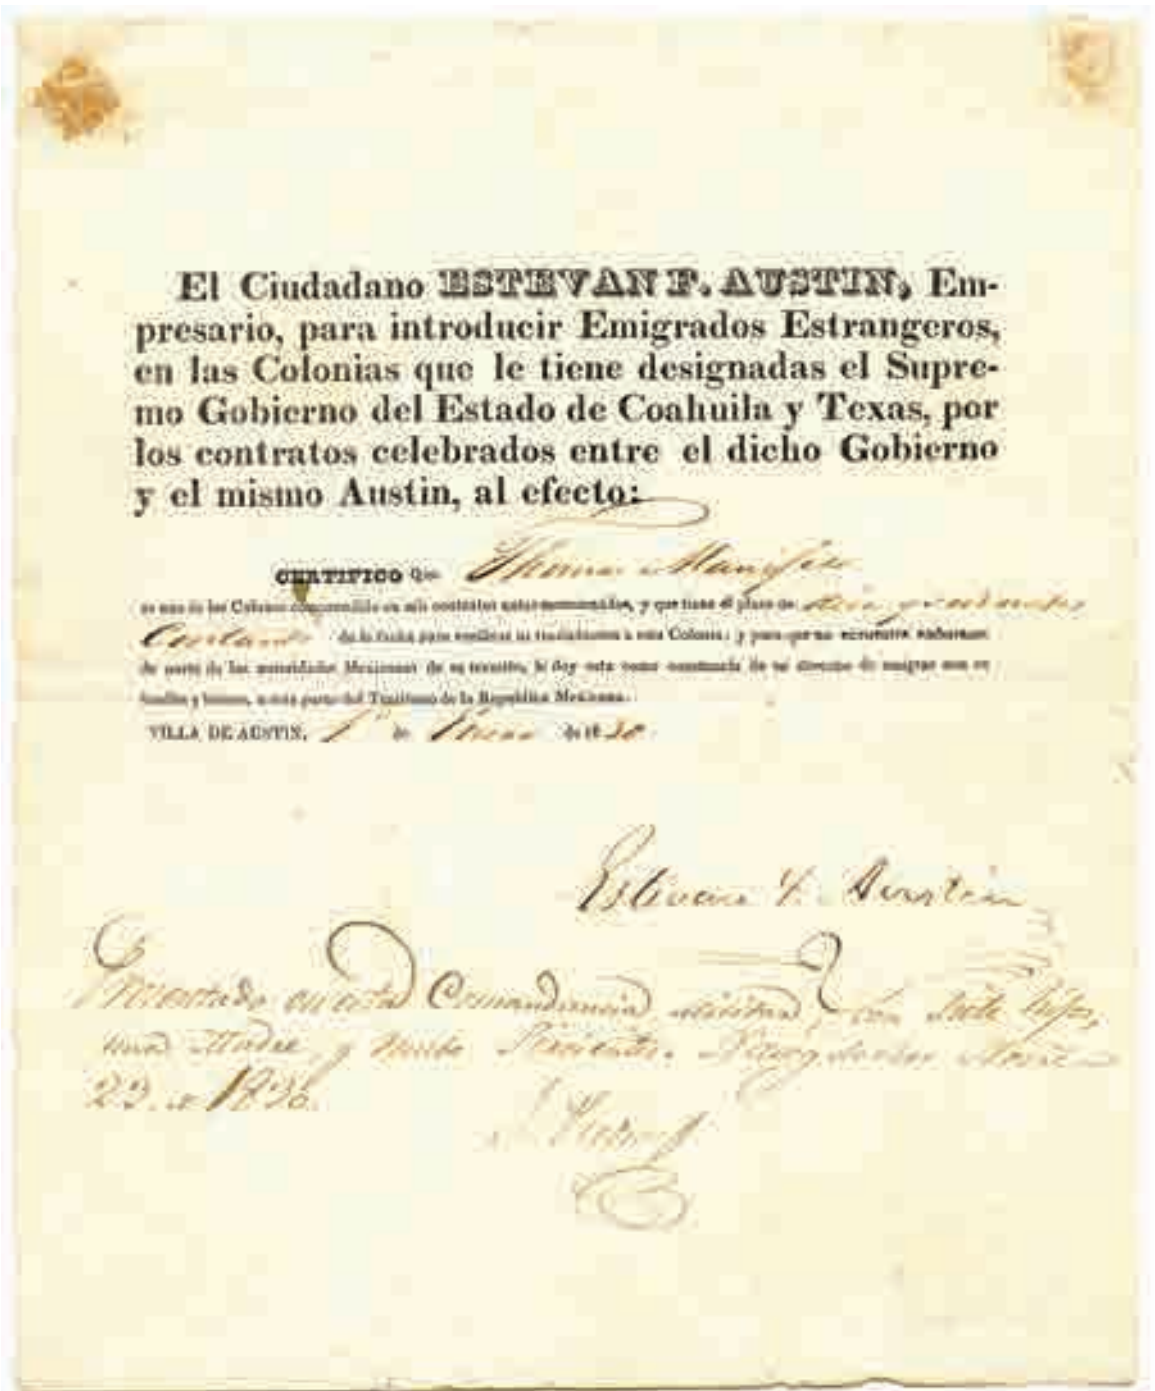 El Ciudadano ESTEVAN F. AUSTIN, Em-
presario, para introducir Emigrados Estrangeros,
en las Colonias que le tiene designadas el Supre-
mo Gobierno del Estado de Coahuila y Texas, por
los contratos celebrados entre el dicho Gobierno
y el mismo Austin, al efecto:
CERTIFICO Que Thomas
es uno de los Colonos comprendido en mis contratos antes mencionados, y que tiene el plazo de
de la fecha para verificar su á esta Colonia; y para que no
de parte de las autoridades Mexicanas de su transito, le doy esta como constancia de su derecho de emigrar con su
familia y bienes, a esta parte del Territorio de la Republica Mexicana.
VILLA DE AUSTIN, 1º de Enero de 1830
Estevan F. Austin
Presentado en esta Comandancia militar, con siete hijos,
una Madre, y
23. de 1830.